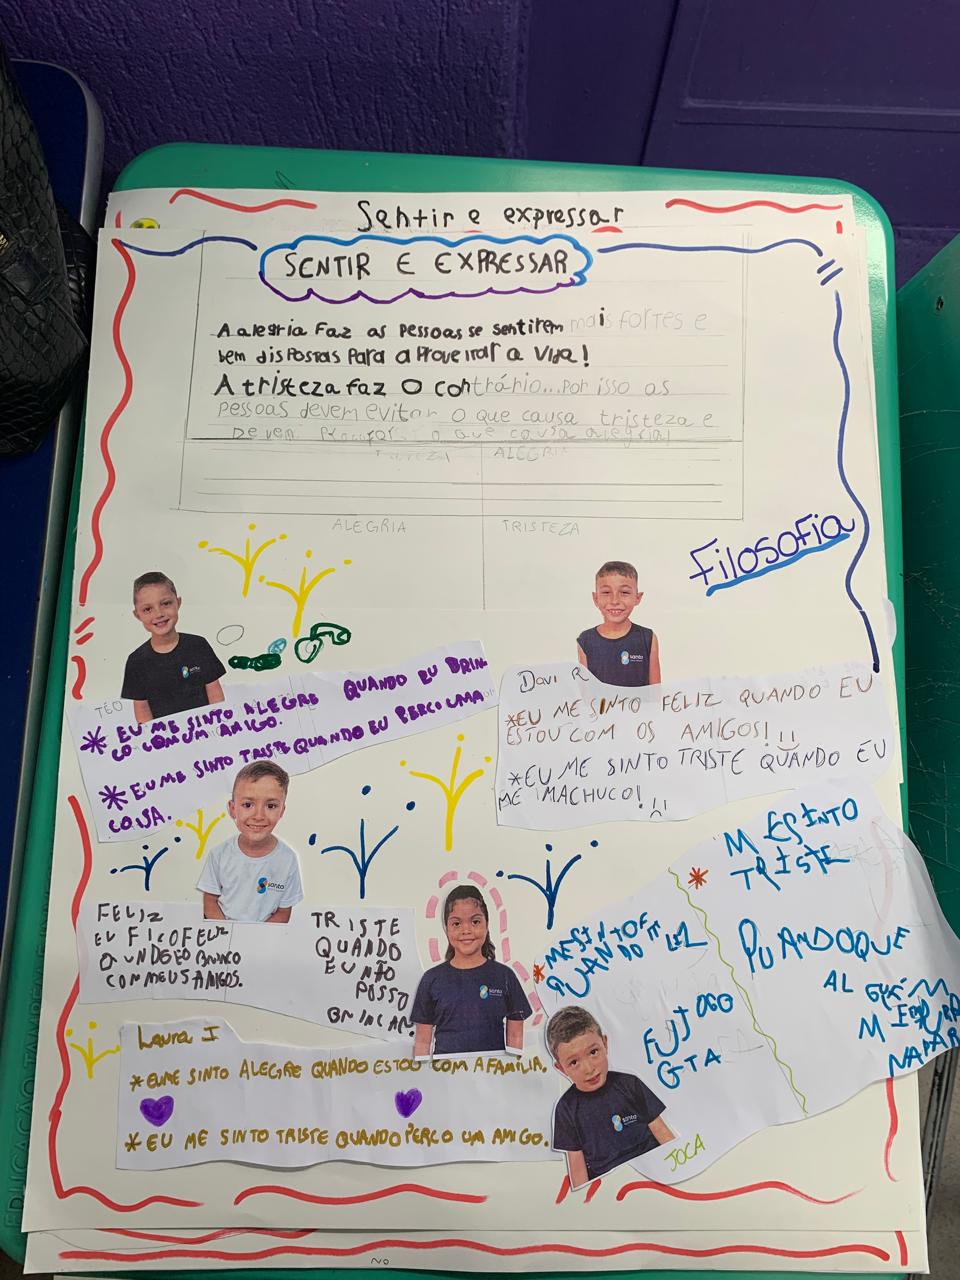 Sentir e expressar
SENTIR E EXPRESSAR
A alegria faz as pessoas se sentirem mais fortes e
bem dispostas para aproveitar a vida!
A tristeza faz o contrário... Por isso as
pessoas devem evitar o que causa tristeza e
devem o que causa alegria!
TRISTEZA ALEGRIA
ALEGRIA TRISTEZA
Filosofia
santo
TÉO
* EU ME SINTO ALEGRE QUANDO EU BRIN
CO COM UM AMIGO.
* EU ME SINTO TRISTE QUANDO EU PERCO UMA
COISA.
santo
Davi R
*EU ME SINTO FELIZ QUANDO EU
ESTOU COM OS AMIGOS!!
*EU ME SINTO TRISTE QUANDO EU
ME MACHUCO!
santo
FELIZ
EU FICO FELIZ
QUNDO EO BRINCO
COM MEUS AMIGOS.
TRISTE
QUANDO
EU NÃO
POSSO
BRINCAR
santo
Laura I
*EU ME SINTO ALEGRE QUANDO ESTOU COM A FAMÍLIA.
*EU ME SINTO TRISTE QUANDO PERCO UM AMIGO.
* ME SINTO FELIZ
QUANDO
EU JOGO
GTA
* ME SINTO
TRISTE
QUANDO QUE
ALGUÉM
santo
JOCA
NO
EDUCAÇÃO TAMBÉM